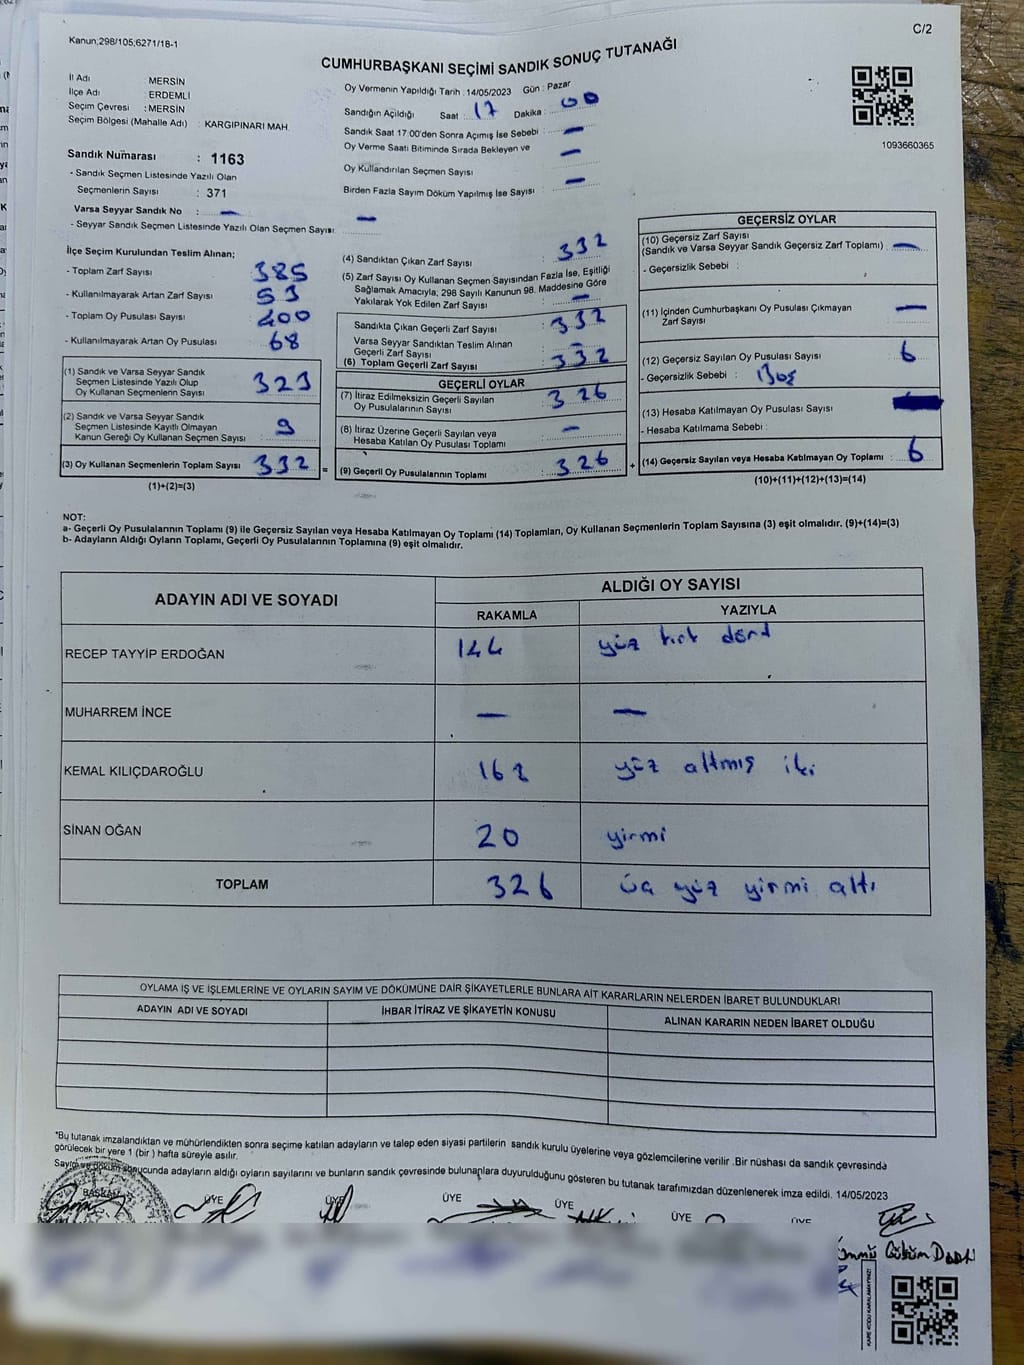 C/2
Kanun;298/105;6271/18-1
CUMHURBAŞKANI SEÇİMİ SANDIK SONUÇ TUTANAĞI
İl Adı MERSİN
İlçe Adı ERDEMLİ
Seçim Çevresi : MERSİN
Seçim Bölgesi (Mahalle Adı) : KARGIPINARI MAH.
Sandık Numarası : 1163
- Sandık Seçmen Listesinde Yazılı Olan
Seçmenlerin Sayısı : 371
Varsa Seyyar Sandık No : –
- Seyyar Sandık Seçmen Listesinde Yazılı Olan Seçmen Sayısı: –
Oy Vermenin Yapıldığı Tarih : 14/05/2023 Gün : Pazar
Sandığın Açıldığı Saat : 17 Dakika : 00
Sandık Saat 17.00'den Sonra Açımış İse Sebebi : –
Oy Verme Saati Bitiminde Sırada Bekleyen ve
Oy Kullandırılan Seçmen Sayısı : –
Birden Fazla Sayım Döküm Yapılmış İse Sayısı : –
1093660365
İlçe Seçim Kurulundan Teslim Alınan;
- Toplam Zarf Sayısı 385
- Kullanılmayarak Artan Zarf Sayısı 53
- Toplam Oy Pusulası Sayısı 400
- Kullanılmayarak Artan Oy Pusulası 68
(1) Sandık ve Varsa Seyyar Sandık
Seçmen Listesinde Yazılı Olup
Oy Kullanan Seçmenlerin Sayısı 323
(2) Sandık ve Varsa Seyyar Sandık
Seçmen Listesinde Kayıtlı Olmayan
Kanun Gereği Oy Kullanan Seçmen Sayısı 9
(3) Oy Kullanan Seçmenlerin Toplam Sayısı 332 =
(1)+(2)=(3)
(4) Sandıktan Çıkan Zarf Sayısı : 332
(5) Zarf Sayısı Oy Kullanan Seçmen Sayısından Fazla İse, Eşitliği
Sağlamak Amacıyla, 298 Sayılı Kanunun 98. Maddesine Göre
Yakılarak Yok Edilen Zarf Sayısı : –
Sandıkta Çıkan Geçerli Zarf Sayısı : 332
Varsa Seyyar Sandıktan Teslim Alınan
Geçerli Zarf Sayısı : –
(6) Toplam Geçerli Zarf Sayısı : 332
GEÇERLİ OYLAR
(7) İtiraz Edilmeksizin Geçerli Sayılan
Oy Pusulalarının Sayısı : 326
(8) İtiraz Üzerine Geçerli Sayılan veya
Hesaba Katılan Oy Pusulası Toplamı : –
(9) Geçerli Oy Pusulalarının Toplamı : 326 +
GEÇERSİZ OYLAR
(10) Geçersiz Zarf Sayısı
(Sandık ve Varsa Seyyar Sandık Geçersiz Zarf Toplamı) : –
- Geçersizlik Sebebi :
(11) İçinden Cumhurbaşkanı Oy Pusulası Çıkmayan
Zarf Sayısı –
(12) Geçersiz Sayılan Oy Pusulası Sayısı : 6
- Geçersizlik Sebebi : Boş
(13) Hesaba Katılmayan Oy Pusulası Sayısı
- Hesaba Katılmama Sebebi :
(14) Geçersiz Sayılan veya Hesaba Katılmayan Oy Toplamı : 6
(10)+(11)+(12)+(13)=(14)
NOT:
a- Geçerli Oy Pusulalarının Toplamı (9) ile Geçersiz Sayılan veya Hesaba Katılmayan Oy Toplamı (14) Toplamları, Oy Kullanan Seçmenlerin Toplam Sayısına (3) eşit olmalıdır. (9)+(14)=(3)
b- Adayların Aldığı Oyların Toplamı, Geçerli Oy Pusulalarının Toplamına (9) eşit olmalıdır.
ADAYIN ADI VE SOYADI ALDIĞI OY SAYISI
RAKAMLA YAZIYLA
RECEP TAYYİP ERDOĞAN 144 yüz kırk dörd
MUHARREM İNCE – –
KEMAL KILIÇDAROĞLU 162 yüz altmış iki
SİNAN OĞAN 20 yirmi
TOPLAM 326 üç yüz yirmi altı
OYLAMA İŞ VE İŞLEMLERİNE VE OYLARIN SAYIM VE DÖKÜMÜNE DAİR ŞİKAYETLERLE BUNLARA AİT KARARLARIN NELERDEN İBARET BULUNDUKLARI
ADAYIN ADI VE SOYADI İHBAR İTİRAZ VE ŞİKAYETİN KONUSU ALINAN KARARIN NEDEN İBARET OLDUĞU
*Bu tutanak imzalandıktan ve mühürlendikten sonra seçime katılan adayların ve talep eden siyasi partilerin sandık kurulu üyelerine veya gözlemcilerine verilir .Bir nüshası da sandık çevresinde
görülecek bir yere 1 (bir ) hafta süreyle asılır.
Sayım ve döküm sonucunda adayların aldığı oyların sayılarını ve bunların sandık çevresinde bulunanlara duyurulduğunu gösteren bu tutanak tarafımızdan düzenlenerek imza edildi. 14/05/2023
BAŞKAN ÜYE ÜYE ÜYE ÜYE ÜYE ÜYE
KARE KODU KARALAMAYINIZ!